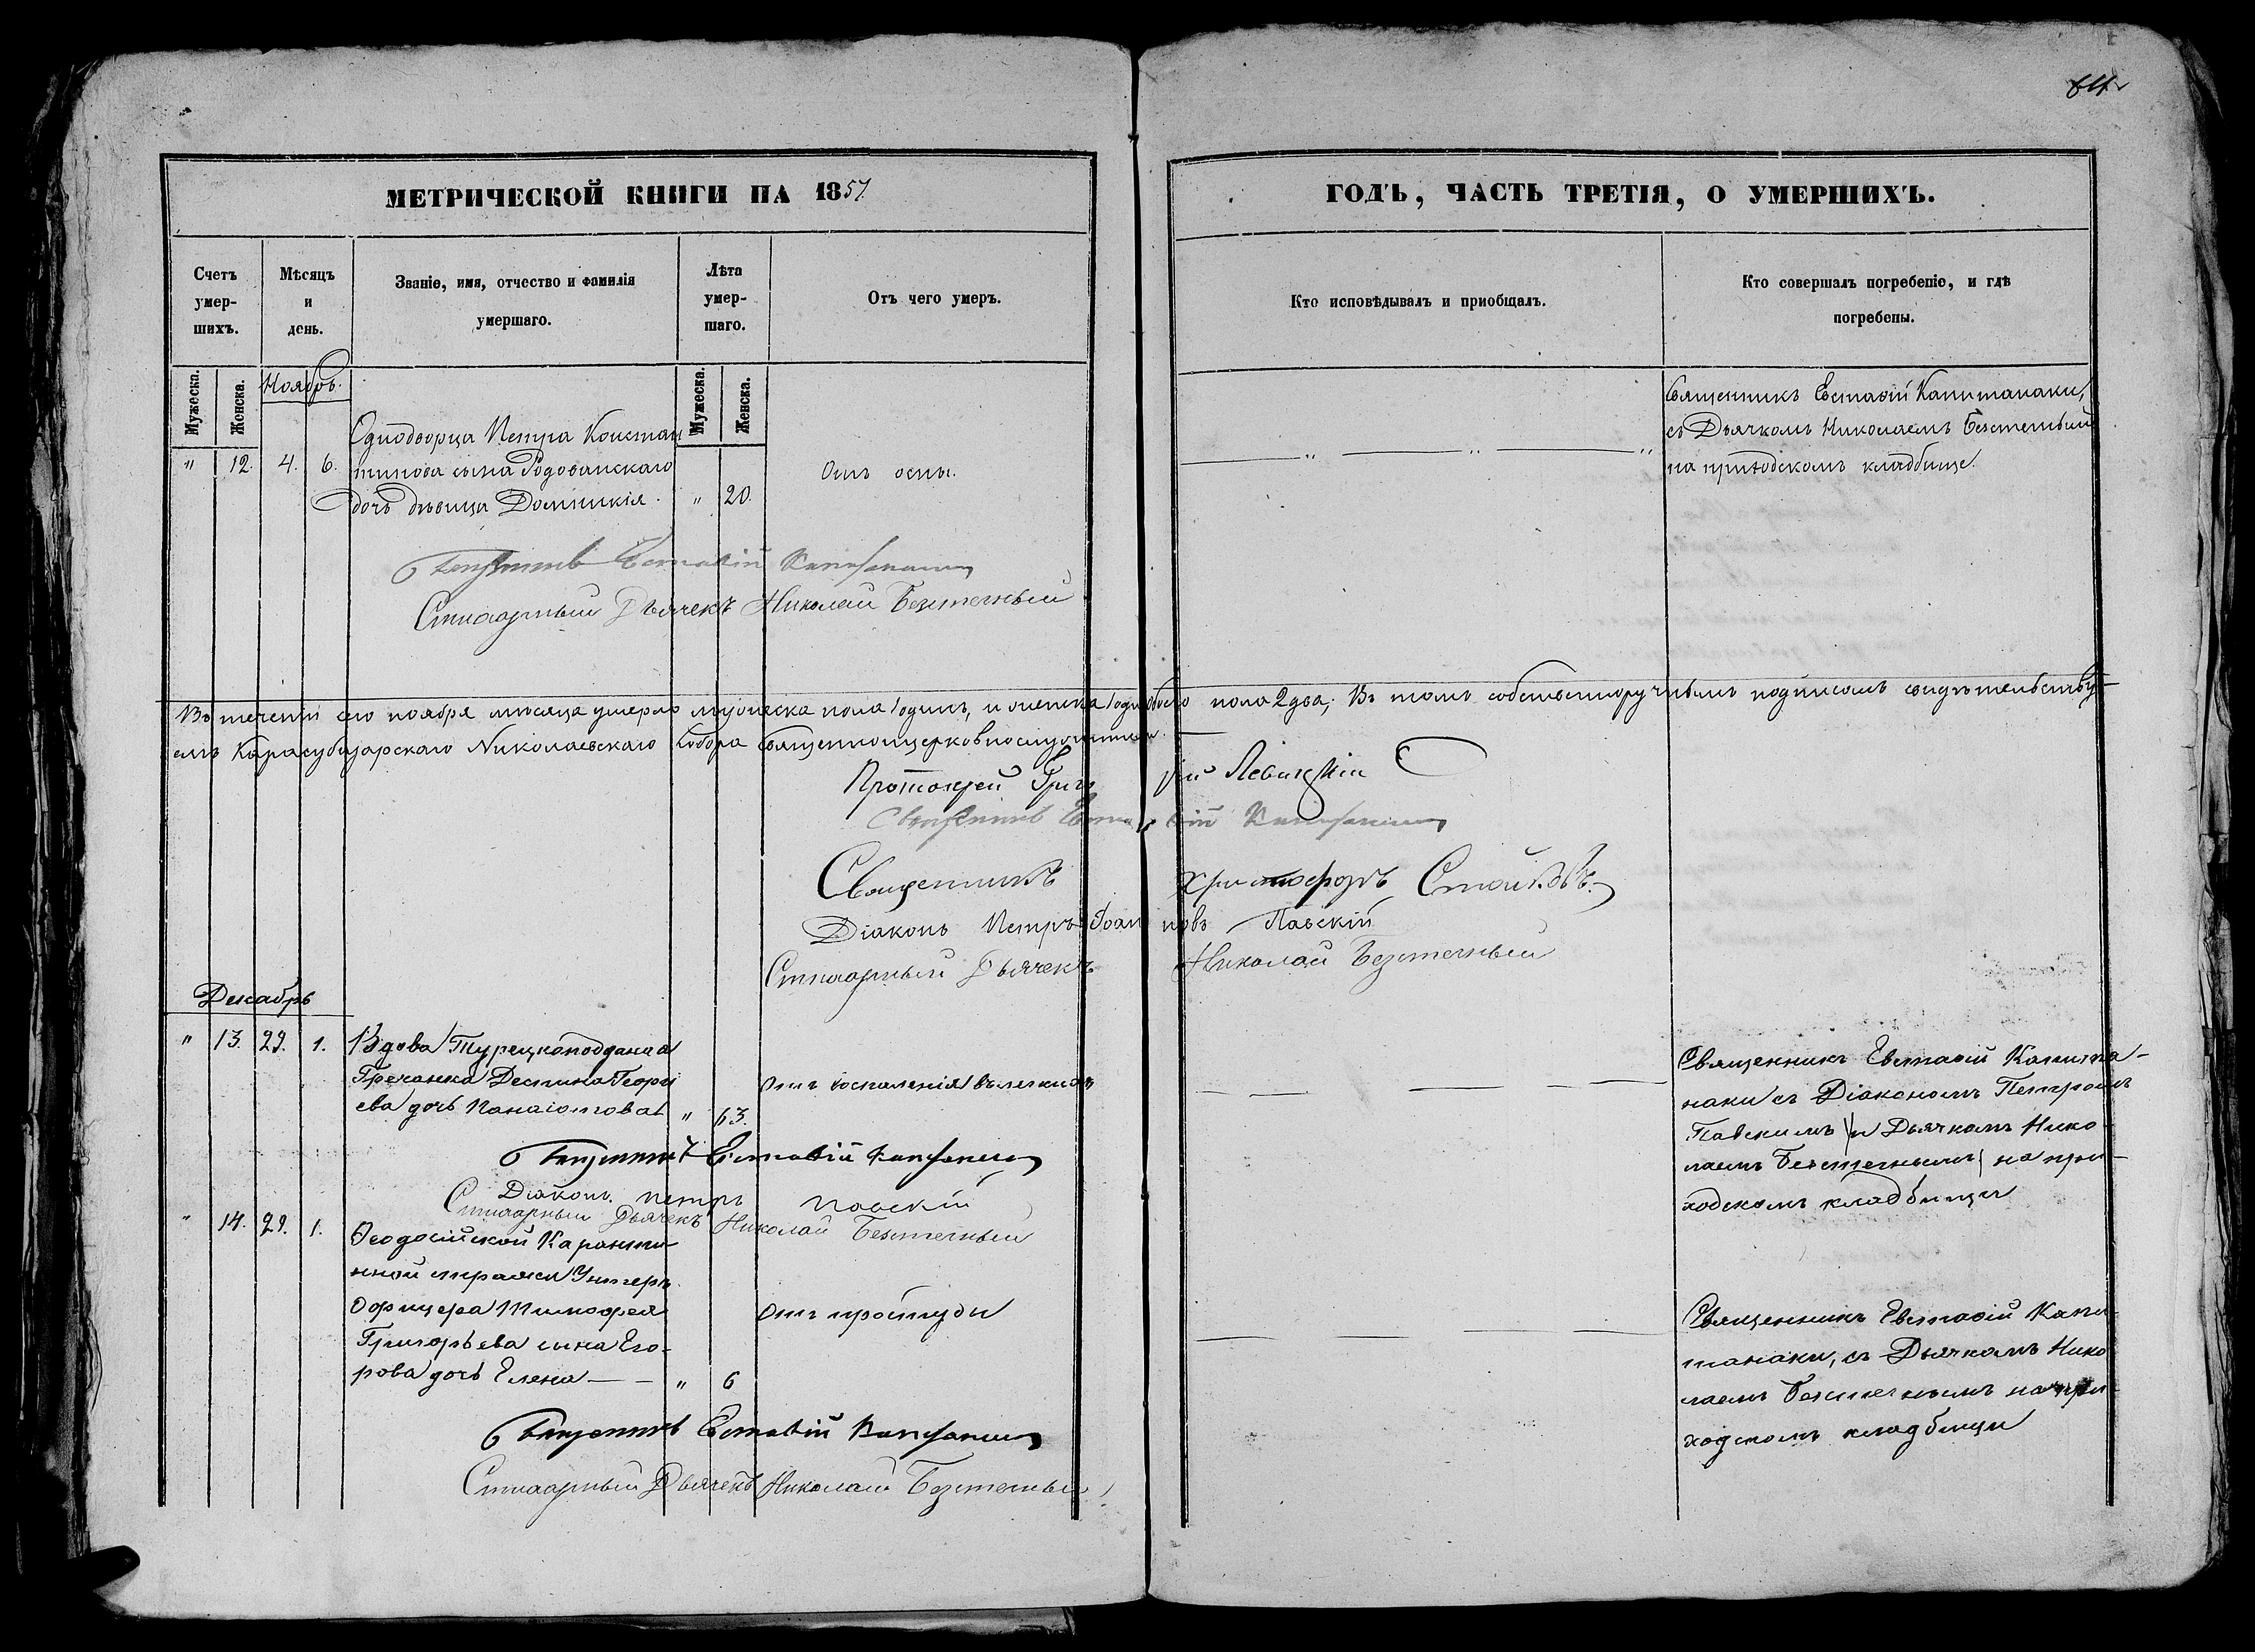 64
МЕТРИЧЕСКОЙ КНИГИ НА 1857
ГОДЪ, ЧАСТЬ ТРЕТІЯ, О УМЕРШИХЪ.
Счетъ умер-
шихъ.
Мѣсяцъ
и
день.
Званіе, имя, отчество и фамилія
умершаго.
Лѣта
умер-
шаго.
Отъ чего умеръ.
Кто исповѣдывалъ и приобщалъ.
Кто совершалъ погребеніе, и гдѣ
погребены.
Мужеска.
Женска.
Мужеска.
Женска.
Ноябрь.
" 12. 4. 6.
Однодворца Петра Констан
тинова сына Родованскаго
дочь дѣвица Домникія.
" 20.
Отъ оспы.
" " "
Священникъ Евстафій Капитанаки,
съ Дьячкомъ Николаемъ Безстегный
на приходскомъ кладбище.
Священникъ Евстафій Капитанаки
Стихарный Дьячекъ Николай Безстегный
Въ теченіи сего ноября мѣсяца умерло мужеска пола 1 одинъ, и женска 1 одна обоего пола 2 два; Въ томъ собственноручнымъ подписомъ свидѣтельству
емъ Карасубазарскаго Николаевскаго Собора священноцерковнослужители.
Протоіерей Григорій Левицкій
Священникъ Евстафій Капитанаки
Священникъ Христофоръ Стойковъ
Діаконъ Петръ Іоанновъ Павскій
Стихарный Дьячекъ Николай Безстегный
Декабрь
" 13. 29. 1.
Вдова Турецкоподданая
Гречанка Деспина Георгі
ева дочь Панаіотова
" 63.
Отъ воспаленія въ легкихъ
Священникъ Евстафій Капита-
наки съ Діакономъ Петромъ
Павскимъ и Дьячкомъ Нико
лаемъ Безстегнымъ на при-
ходскомъ кладбищи
Священникъ Евстафій Капитанаки
Діаконъ Петръ Павскій
Стихарный Дьячекъ Николай Безстегный
" 14. 29. 1.
Ѳеодосійской Каранти-
нной стражи Унтеръ
Офицера Тимофея
Григорьева сына Его-
рова дочь Елена
" 6
Отъ простуды
Священникъ Евстафій Капи-
танаки, съ Дьячкомъ Нико
лаемъ Безстегнымъ на при-
ходскомъ кладбищи
Священникъ Евстафій Капитанаки
Стихарный Дьячекъ Николай Безстегный